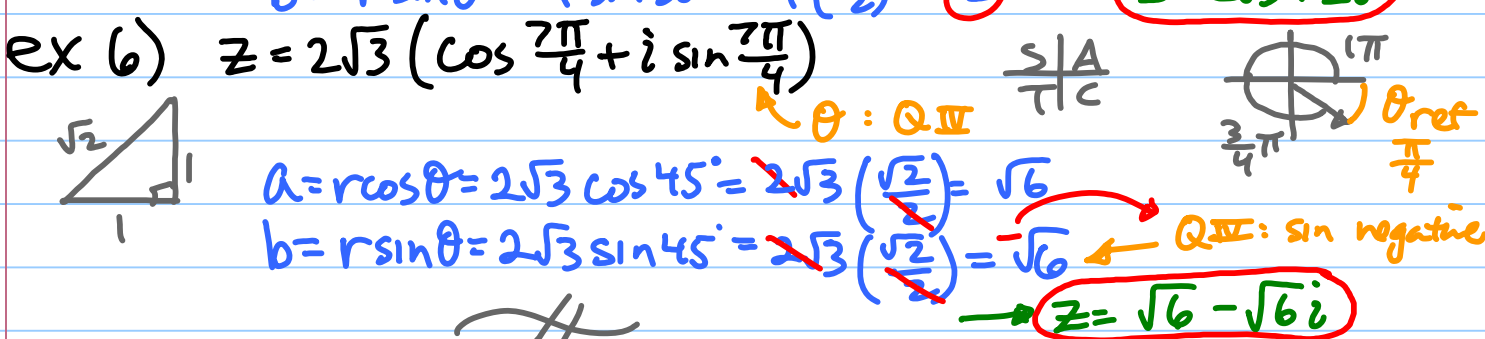 ex 6) z = 2√3 (cos 7π/4 + i sin 7π/4)
S A
T C
1π
θ : QIV
θref
π/4
3/4 π
√2
1
1
a = rcosθ = 2√3 cos45° = 2√3 (√2/2) = √6
b = rsinθ = 2√3 sin45° = 2√3 (√2/2) = -√6
QIV: sin negative
z = √6 - √6 i